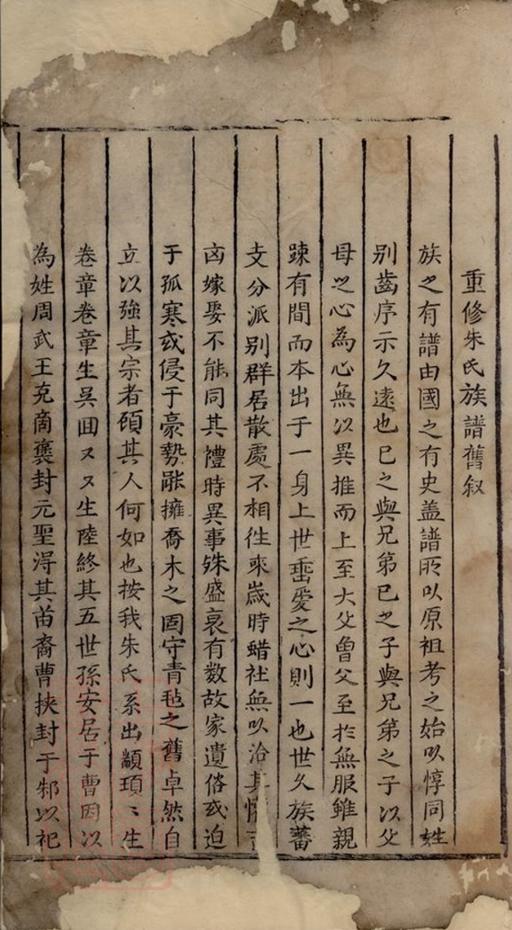 重修朱氏族譜舊叙
族之有譜由國之有史盖譜所以原祖考之始以惇同姓
别齒序示久遠也已之與兄弟已之子與兄弟之子以父
母之心為心無以異推而上至大父曾父至於無服雖親
踈有間而本出于一身上世埀愛之心則一也世久族蕃
支分派别群居散處不相徃來歲時蜡社無以洽其情吉
凶嫁娶不能同其禮時異事殊盛衰有数故家遺俗或迫
于孤寒或侵于豪勢能擁喬木之固守青毡之舊卓然自
立以強其宗者頋其人何如也按我朱氏系出顓頊〻生
卷章卷章生吳囬又又生陸終其五世孫安居于曹因以
為姓周武王克商襃封元聖淂其苗裔曹挾封于邾以祀